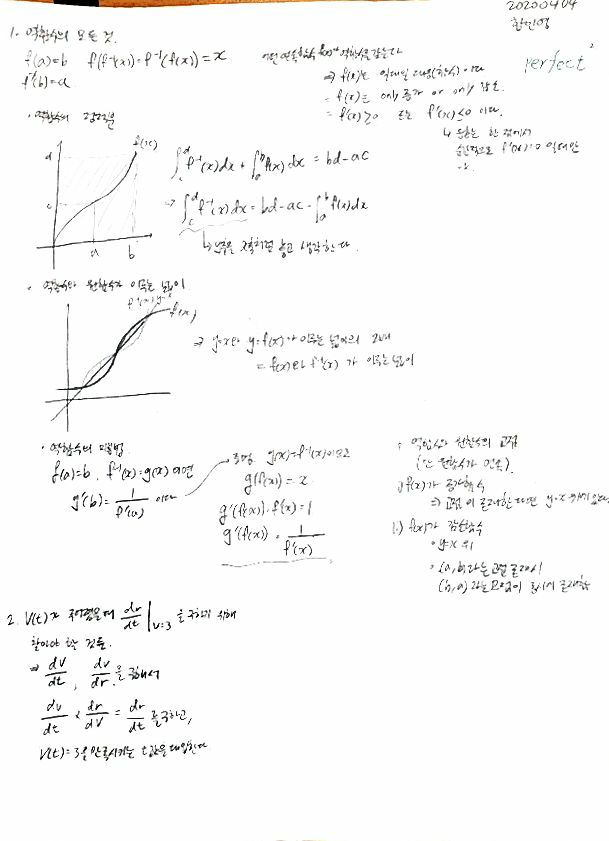 20200404
한민영
perfect
1. 역함수의 모든 것.
f(a)=b f(f⁻¹(x))=f⁻¹(f(x))=x
f⁻¹(b)=a
어떤 연속함수 f(x)가 역함수를 갖는다
⇒ f(x)는 일대일 대응(함수)이다
= f(x)는 only 증가 or only 감소.
= f'(x)≥0 또는 f'(x)≤0 이다.
↳ 한 점에서
순간적으로 f'(x)=0
· 역함수의 정적분
f(x)
d
c
a b
∫_c^d f⁻¹(x)dx + ∫_a^b f(x)dx = bd-ac
→ ∫_c^d f⁻¹(x)dx = bd-ac-∫_a^b f(x)dx
생각한다.
· 역함수와 원함수가 이루는 넓이
f⁻¹(x) y=x
f(x)
⇒ y=x와 y=f(x)가 이루는 넓이의 2배
= f(x)와 f⁻¹(x)가 이루는 넓이
· 역함수의 미분법
f(a)=b, f⁻¹(x)=g(x) 이면
g'(b)= 1/f'(a) 이다
증명. g(x)=f⁻¹(x)이므로
g(f(x))=x
g'(f(x))·f'(x)=1
g'(f(x)) = 1/f'(x)
· 역함수와 원함수의 교점
(단 원함수가 연속).
i) f(x)가 증가함수
⇒ 교점이 존재한다면 y=x 위에 있다.
ii) f(x)가 감소함수
· y=x 위
· (a,b)라는 교점 존재시
(b,a)라는 교점이 존재함
2. V(t)가 주어졌을때 dr/dt|v=3 을 구하기 위해
알아야 할 것들.
⇒ dV/dt, dv/dr 을 구해서
dv/dt × dr/dV = dr/dt 를 구하고,
V(t)=3을 만족시키는 t값을 대입한다.